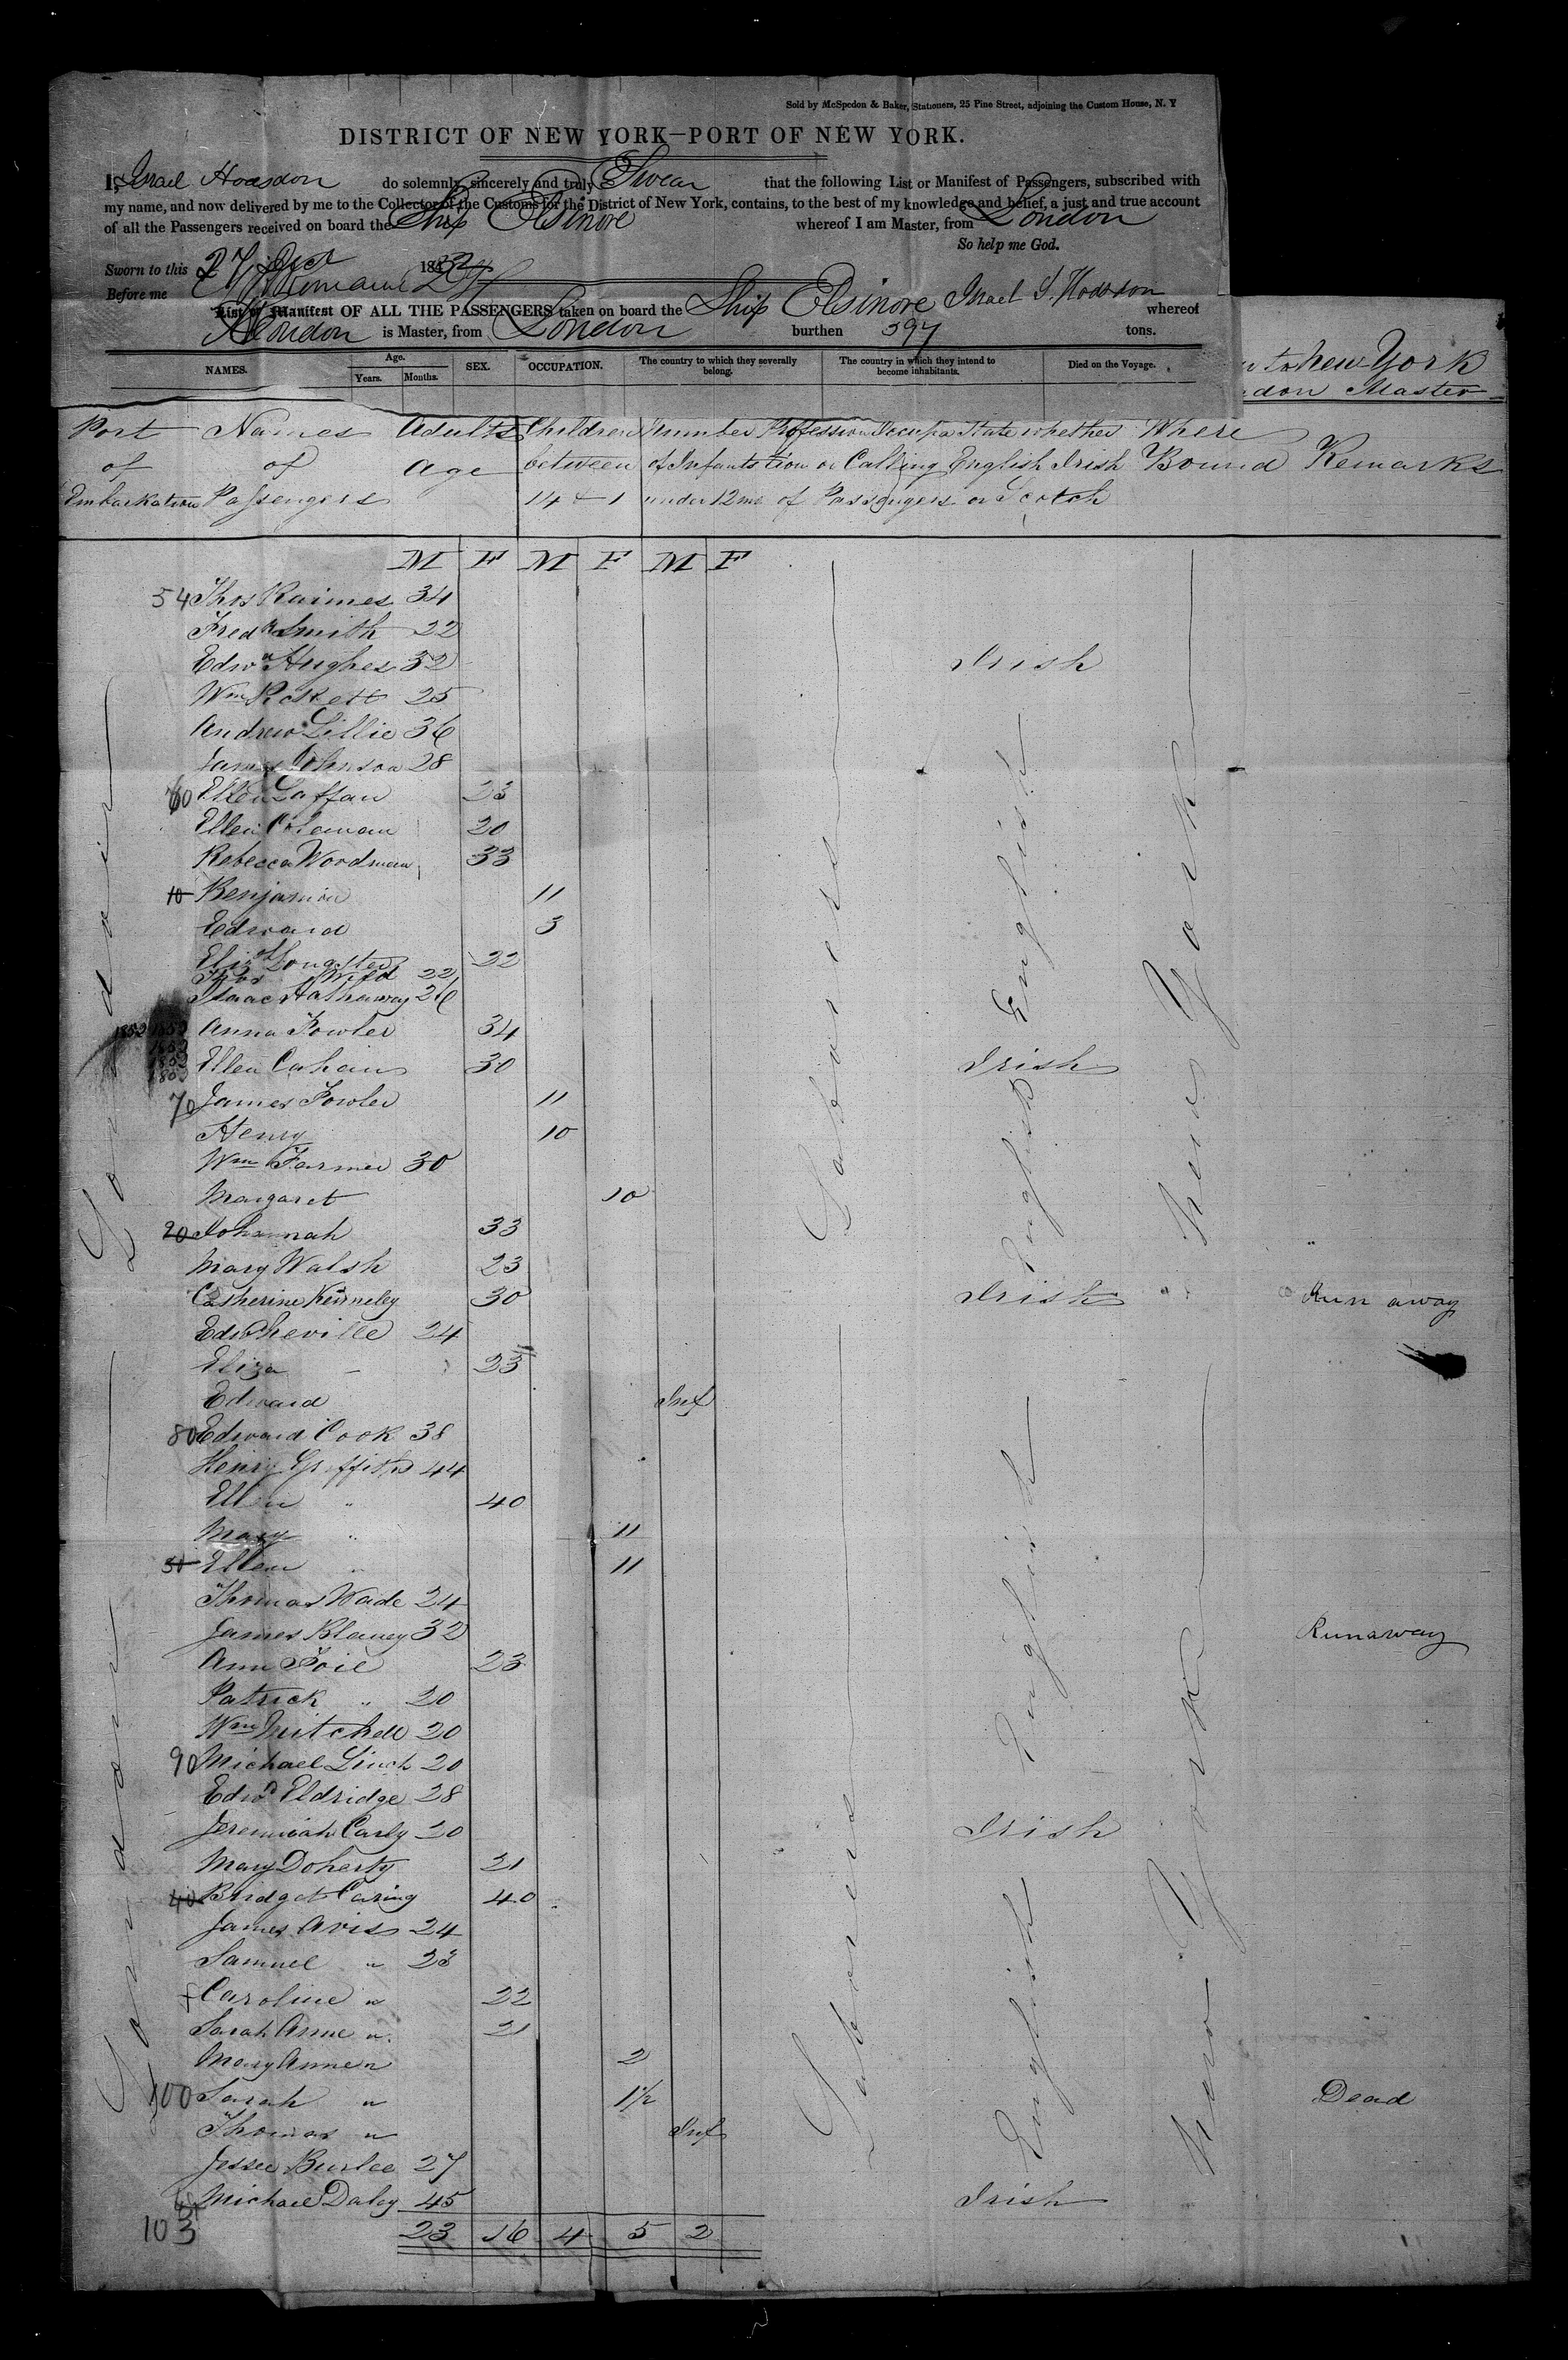 Sold by McSpedon & Baker, Stationers, 25 Pine Street, adjoining the Custom House, N. Y
DISTRICT OF NEW YORK—PORT OF NEW YORK.
I, Israel Hodsdon do solemnly, sincerely and truly Swear that the following List or Manifest of Passengers, subscribed with
my name, and now delivered by me to the Collector of the Customs for the District of New York, contains, to the best of my knowledge and belief, a just and true account
of all the Passengers received on board the Ship Elsinore whereof I am Master, from London
So help me God.
Sworn to this 27 Oct 1852
Before me
List or Manifest OF ALL THE PASSENGERS taken on board the Ship Elsinore Israel S. Hodsdon whereof
is Master, from London burthen 597 tons.
NAMES. Age. Years. Months. SEX. OCCUPATION. The country to which they severally belong. The country in which they intend to become inhabitants. Died on the Voyage.
to New York
Master
Port Names Adults Children Number Profession Occupa State whether Where
of of Age between of Infants tion or Calling English Irish Bound Remarks
Embarkation Passengers 14 & 1 under 12 mo of Passengers or Scotch
M F M F M F
54 Thos Raimes 34
Fredk Smith 22
Edwd Hughes 32 Irish
Wm Pickett 25
Andrew Lillie 36
James Johnson 28
60 Ellen Laffan 23
Ellen Coleman 20
Rebecca Woodman 33
10 Benjamin 11
Edward 3
Elizth Longster 22
Thos Wild 22
Isaac Hathaway 26
1852 1852 Anna Fowler 34
1852
1852 Ellen Cahain 30 Irish
1852
70 James Fowler 11
Henry 10
Wm Farmer 30
Margaret 10
20 Johannah 33
Mary Walsh 23
Catherine Kenneley 30 Irish Run away
Edwd Neville 24
Eliza 23
Edward Inf
80 Edward Cook 38
Henry Griffiths 44
Ellen " 40
Mary " 11
30 Ellen " 11
Thomas Wade 24
James Blaney 32 Runaway
Ann Foie 23
Patrick " 20
Wm Mitchell 20
90 Michael Linch 20
Edwd Eldridge 28
Jeremiah Carly 20 Irish
Mary Doherty 21
40 Bridget Caring 40
James Avis 24
Samuel " 23
Caroline " 22
Sarah Anne " 21
Mary Anne " 2
100 Sarah " 1½ Dead
Thomas " Inf
Jessee Burlee 27
Michael Daley 45 Irish
103 23 16 4 5 2
London
London
London
Laborers
Laborers
English
English
English
English
New York
New York